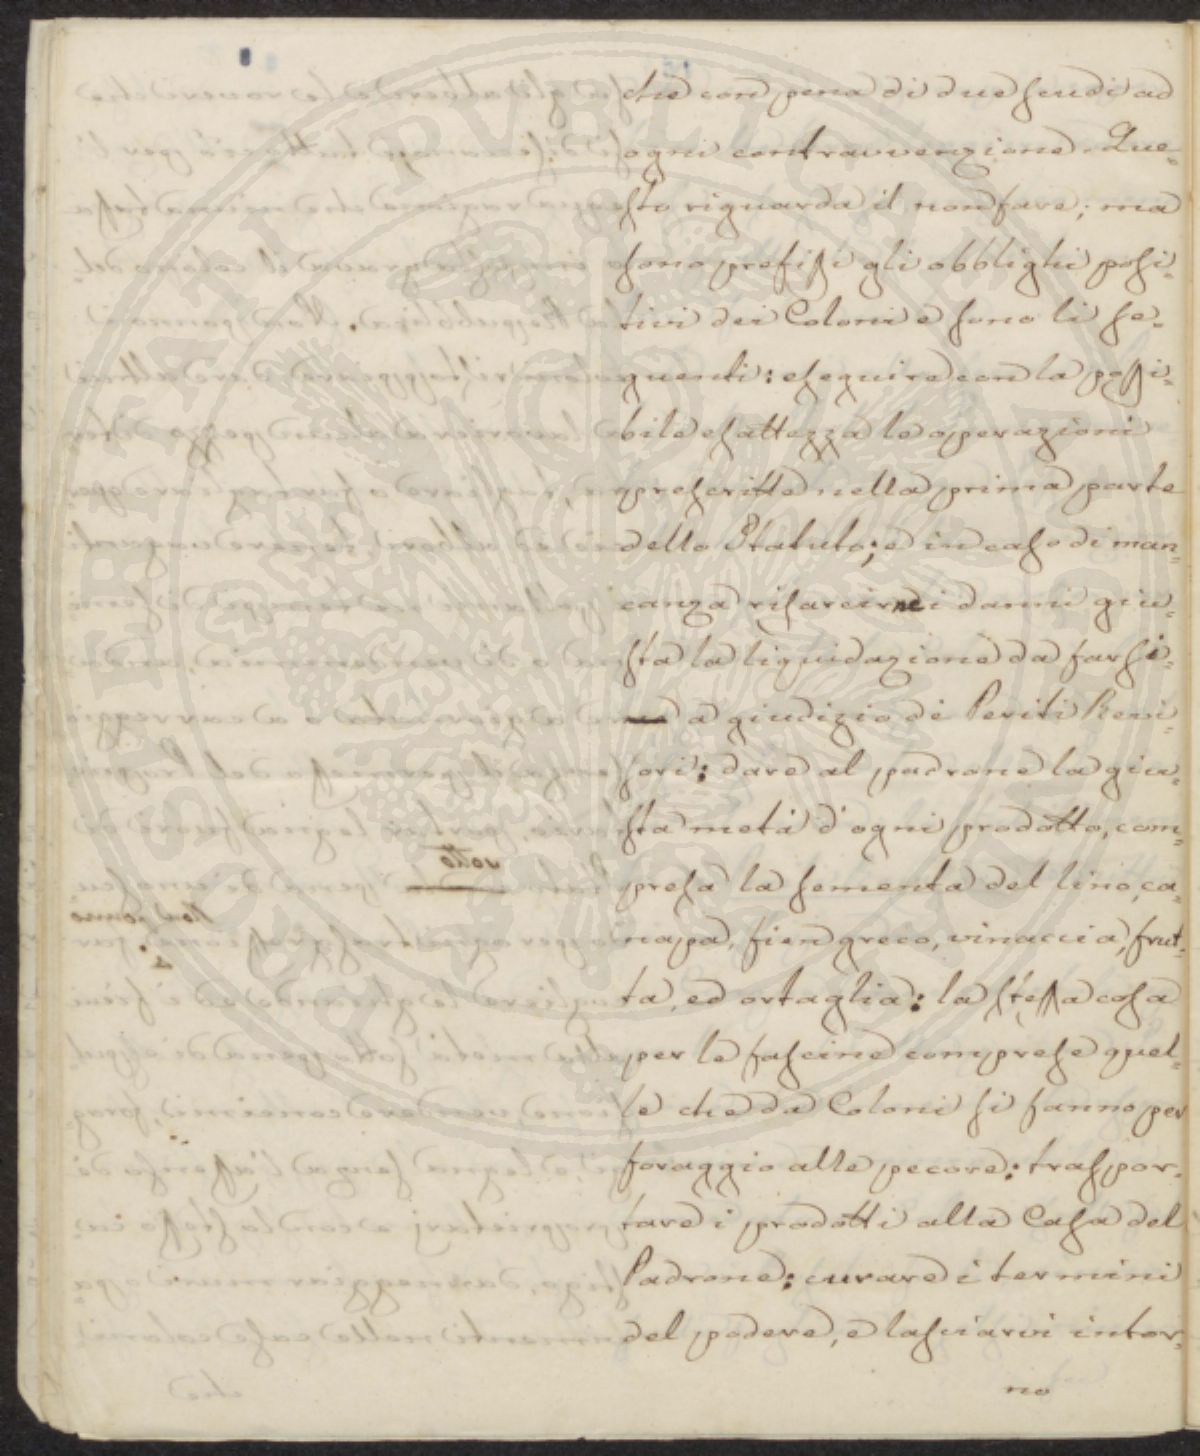 che con pena di due scudi ad
ogni contravvenzione. Que=
sto riguarda il non fare; ma
sono prefissi gli obblighi posi=
tivi dei Coloni e sono li se=
guenti: eseguire con la possi=
bile esattezza le operazioni
prescritte nella prima parte
dello Statuto; e in caso di man=
canza risarcirne i danni giu=
sta la liquidazione da farsi=
ne a giudizio de Periti Revi=
sori: dare al padrone la giu=
sta metà d'ogni prodotto, com=
presa la sementa del lino, ca=
napa, fien greco, vinaccia, frut=
ta, ed ortaglia: la stessa cosa
per le fascine comprese quel=
le che da Coloni si fanno per
foraggio alle pecore: traspor=
tare i prodotti alla Casa del
Padrone: curare i termini
del podere, e lasciarvi intor=
no